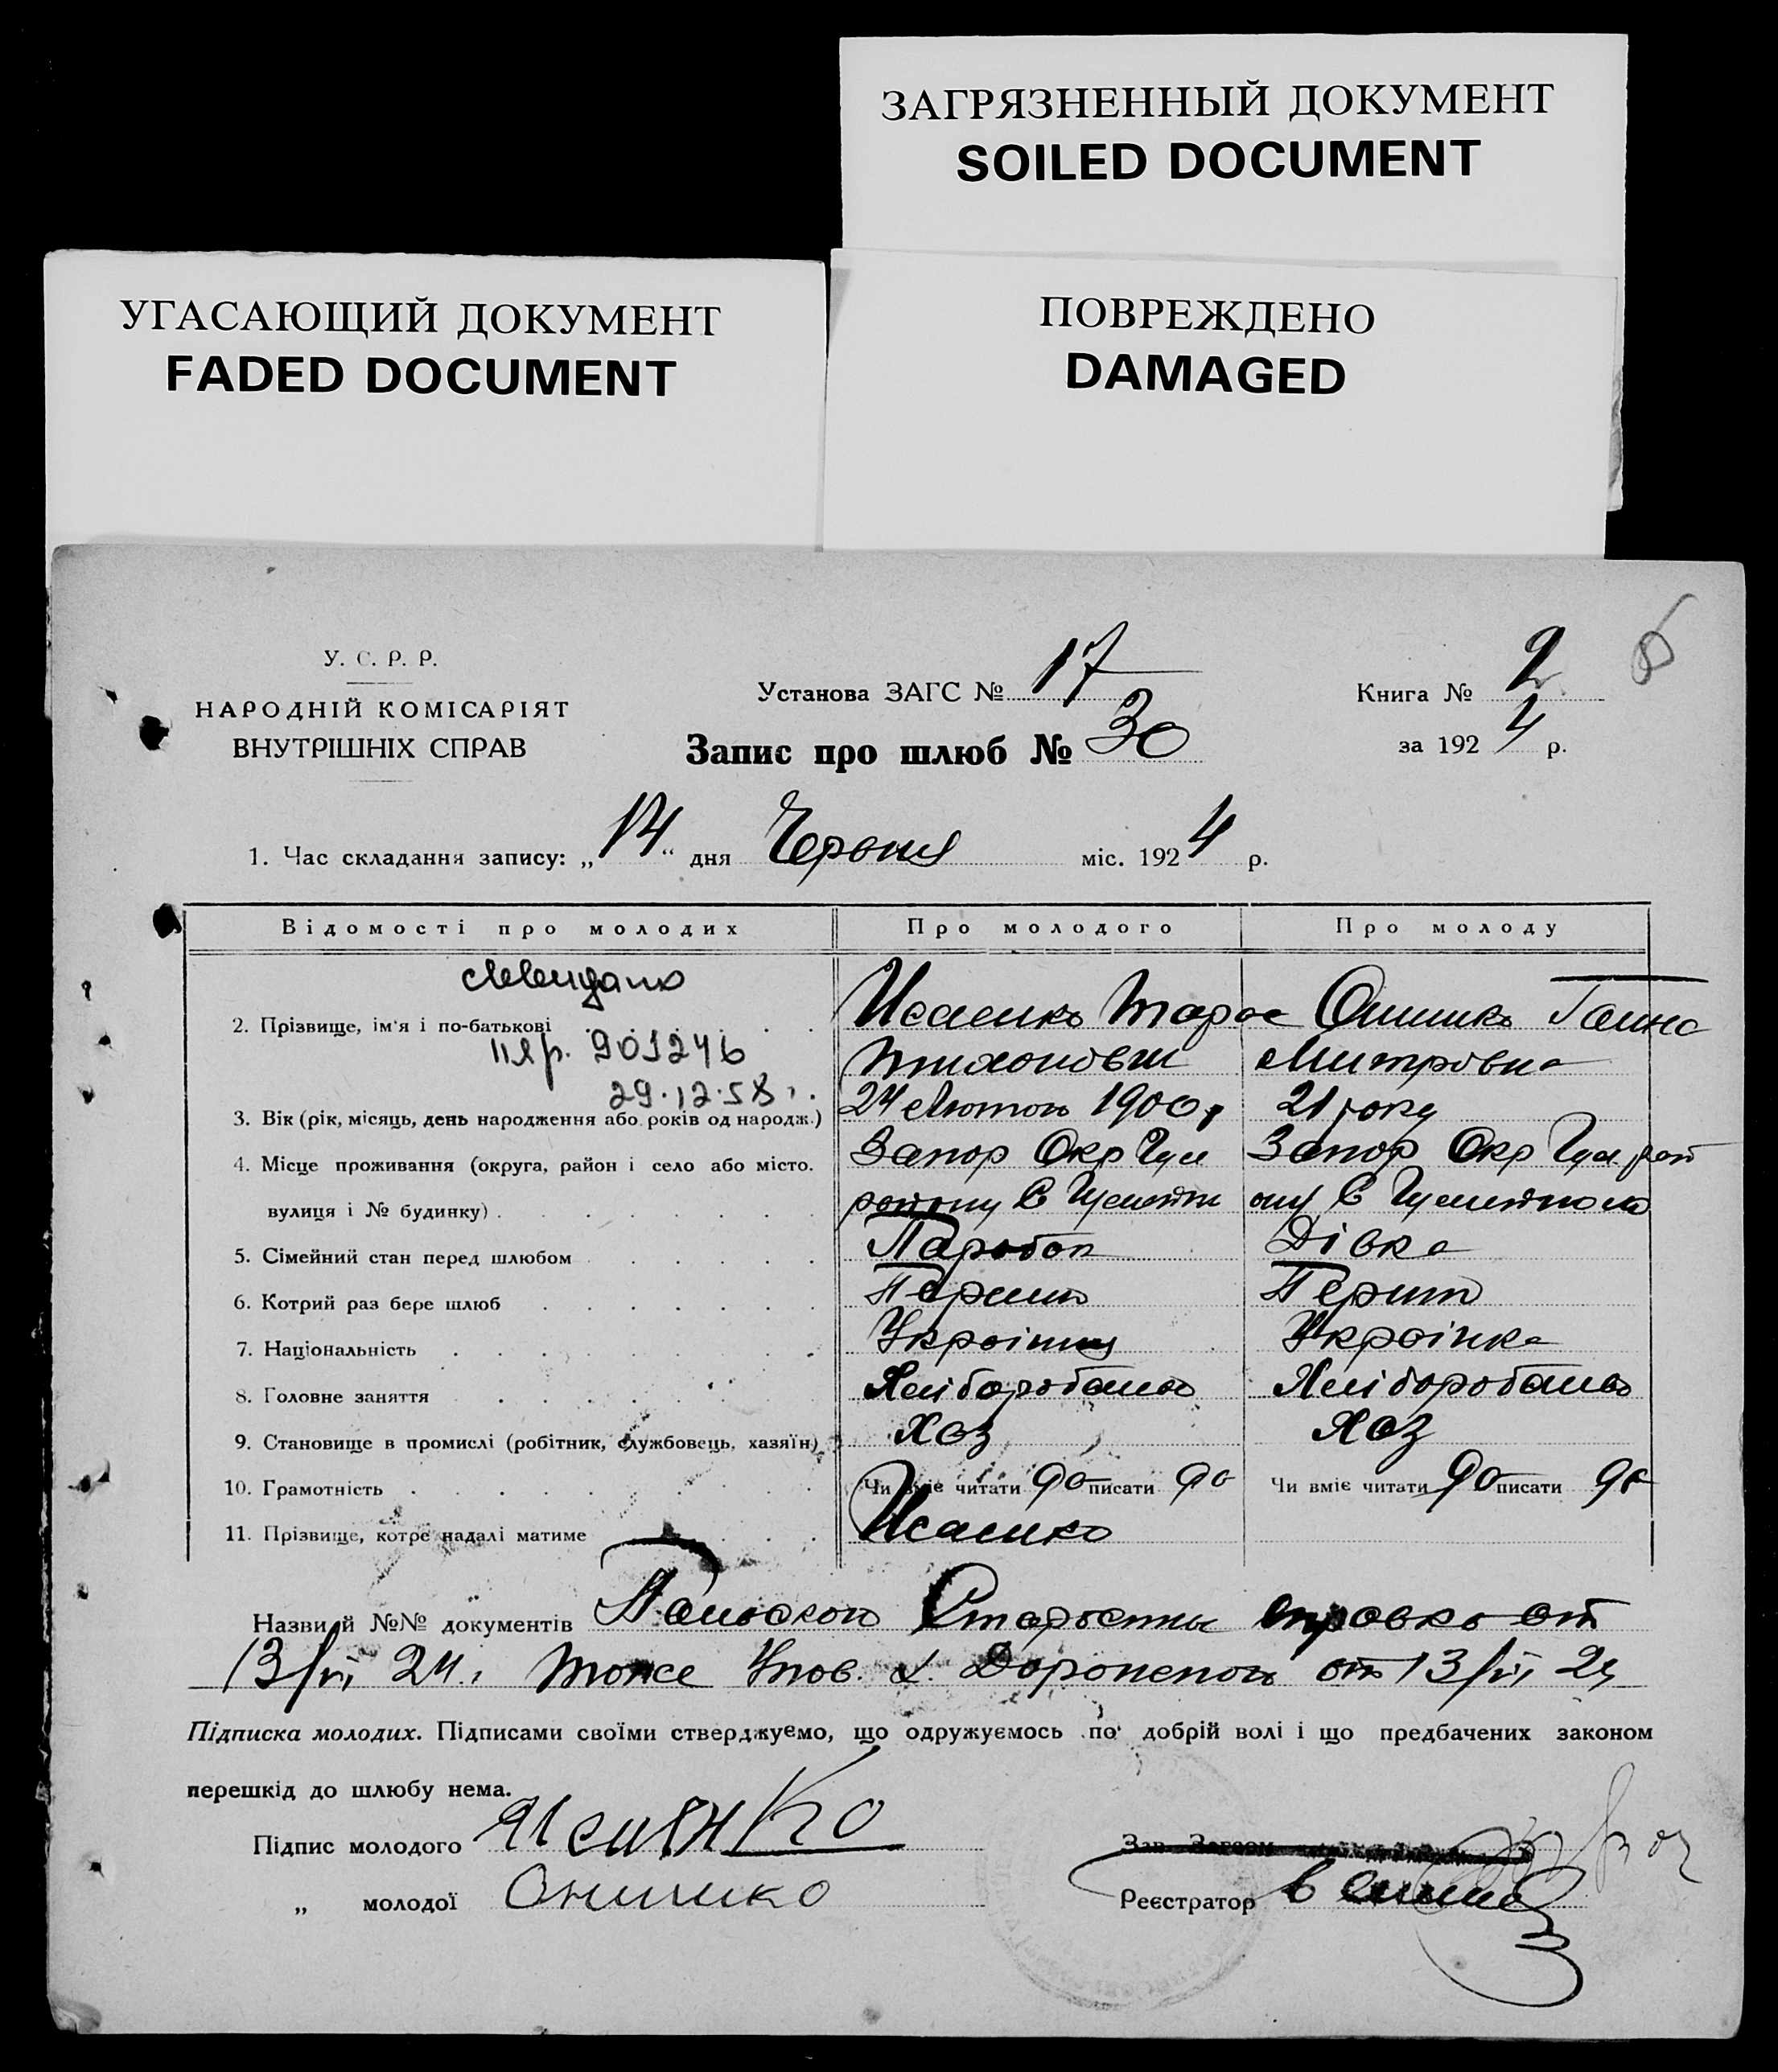 ЗАГРЯЗНЕННЫЙ ДОКУМЕНТ
SOILED DOCUMENT
УГАСАЮЩИЙ ДОКУМЕНТ
FADED DOCUMENT
ПОВРЕЖДЕНО
DAMAGED
6
У. С. Р. Р.
НАРОДНІЙ КОМІСАРІЯТ
ВНУТРІШНІХ СПРАВ
Установа ЗАГС № 17
Книга № 2
Запис про шлюб № 30
за 1924 р.
1. Час складання запису: „14“ дня Червня міс. 1924 р.
Відомості про молодих Про молодого Про молоду
2. Прізвище, ім'я і по-батькові Исаенко Тарас Онишко Ганна
Тихонович Митровна
901246
29.12.58
3. Вік (рік, місяць, день народження або років од народж.) 24 Лютого 1900 р 21 року
4. Місце проживання (округа, район і село або місто. Запор Окр Гул Запор Окр Гул рай
вулиця і № будинку) району С ону С
5. Сімейний стан перед шлюбом Паробок Дівка
6. Котрий раз бере шлюб Перший Перший
7. Національність Українець Українка
8. Головне заняття Хліборобство Хліборобство
9. Становище в промислі (робітник, службовець, хазяїн) Хоз Хоз
10. Грамотність Чи вміє читати да писати да Чи вміє читати да писати да
11. Прізвище, котре надалі матиме Исаенко
Назви й №№ документів справка от
13/VI 24. Тоже от 13/VI 24
Підписка молодих. Підписами своїми стверджуємо, що одружуємось по добрій волі і що предбачених законом
перешкід до шлюбу нема.
Підпис молодого Исаянко
Зав. Загсом
„ молодої Онишко
Реєстратор